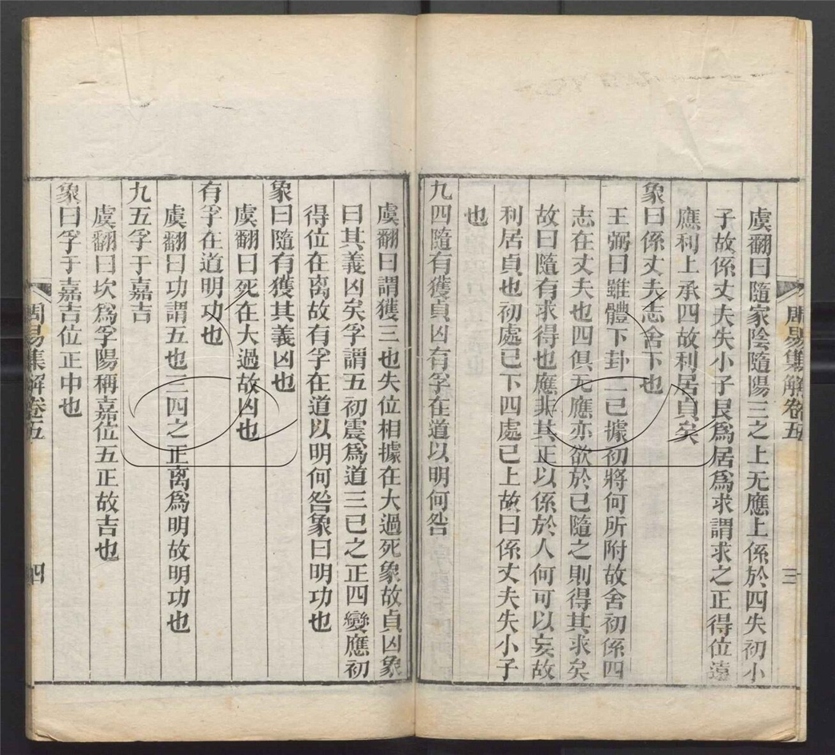 虞翻曰隨家陰隨陽三之上无應上係於四失初小
子故係丈夫失小子艮爲居爲求謂求之正得位遠
應利上承四故利居貞矣
象曰係丈夫志舍下也
王弼曰雖體下卦二已據初將何所附故舍初係四
志在丈夫也四俱无應亦欲於已隨之則得其求矣
故曰隨有求得也應非其正以係於人何可以妄故
利居貞也初處已下四處已上故曰係丈夫失小子
也
九四隨有獲貞凶有孚在道以明何咎
周易集解卷五
三
虞翻曰謂獲三也失位相據在大過死象故貞凶象
曰其義凶矣孚謂五初震爲道三已之正四變應初
得位在离故有孚在道以明何咎象曰明功也
象曰隨有獲其義凶也
虞翻曰死在大過故凶也
有孚在道明功也
虞翻曰功謂五也三四之正离爲明故明功也
九五孚于嘉吉
虞翻曰坎爲孚陽稱嘉位五正故吉也
象曰孚于嘉吉位正中也
周易集解卷五
四